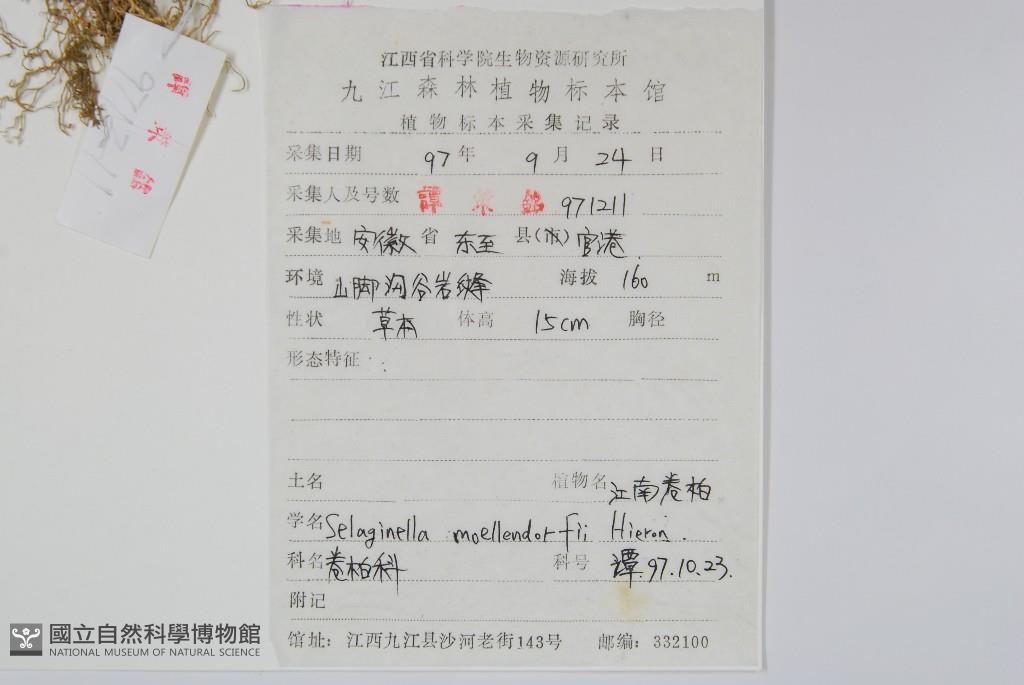 江西省科学院生物资源研究所
九江森林植物标本馆
植物标本采集记录
采集日期 97年 9月 24日
采集人及号数 譚 策 銘 971211
采集地 安徽省 东至县(市) 官港
环境 山脚沟谷岩缝 海拔 160 m
性状 草本 体高 15cm 胸径
形态特征
土名 植物名 江南卷柏
学名 Selaginella moellendorfii Hieron.
科名 卷柏科 科号 谭.97.10.23.
附记
馆址：江西九江县沙河老街143号 邮编：332100
譚 策 銘
971211
國立自然科學博物館
NATIONAL MUSEUM OF NATURAL SCIENCE